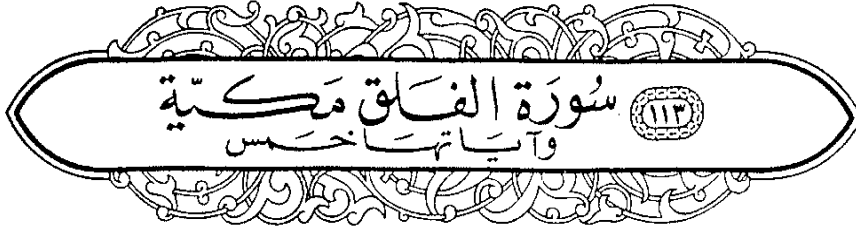 ١١٣ سُورَة الفَلَق مَكيّة
وآياتها خمس